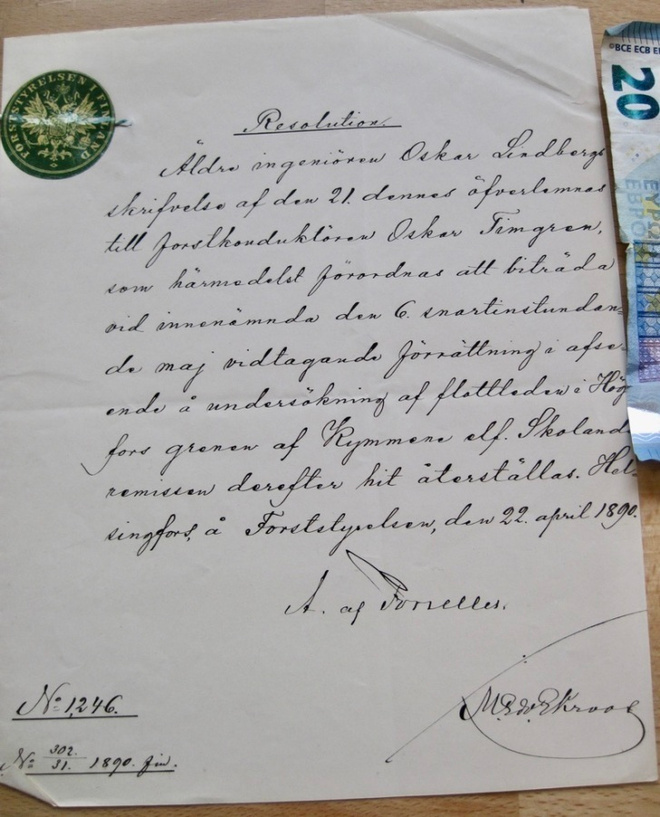 FORSTSTYRELSEN I FINLAND
Resolution.
Äldre ingeniören Oskar Lindbergs
skrifvelse af den 21. dennes öfverlemnas
till forstkonduktören Oskar Timgren,
som härmedelst förordnas att biträda
vid innenämnda den 6. snartinstundan-
de maj vidtagande förrättning i afse-
ende å undersökning af flottleden i Hög
fors grenen af Kymmene elf. Skolande
remissen derefter hit återställas. Hel-
singfors, å Forststyrelsen, den 22. april 1890.
A. af Forselles.
M. Edv. Ekroos
No 1,246.
No 302./31. 1890. fin.
©BCE ECB E
20
ΕΥΡΩ
ЕВРО